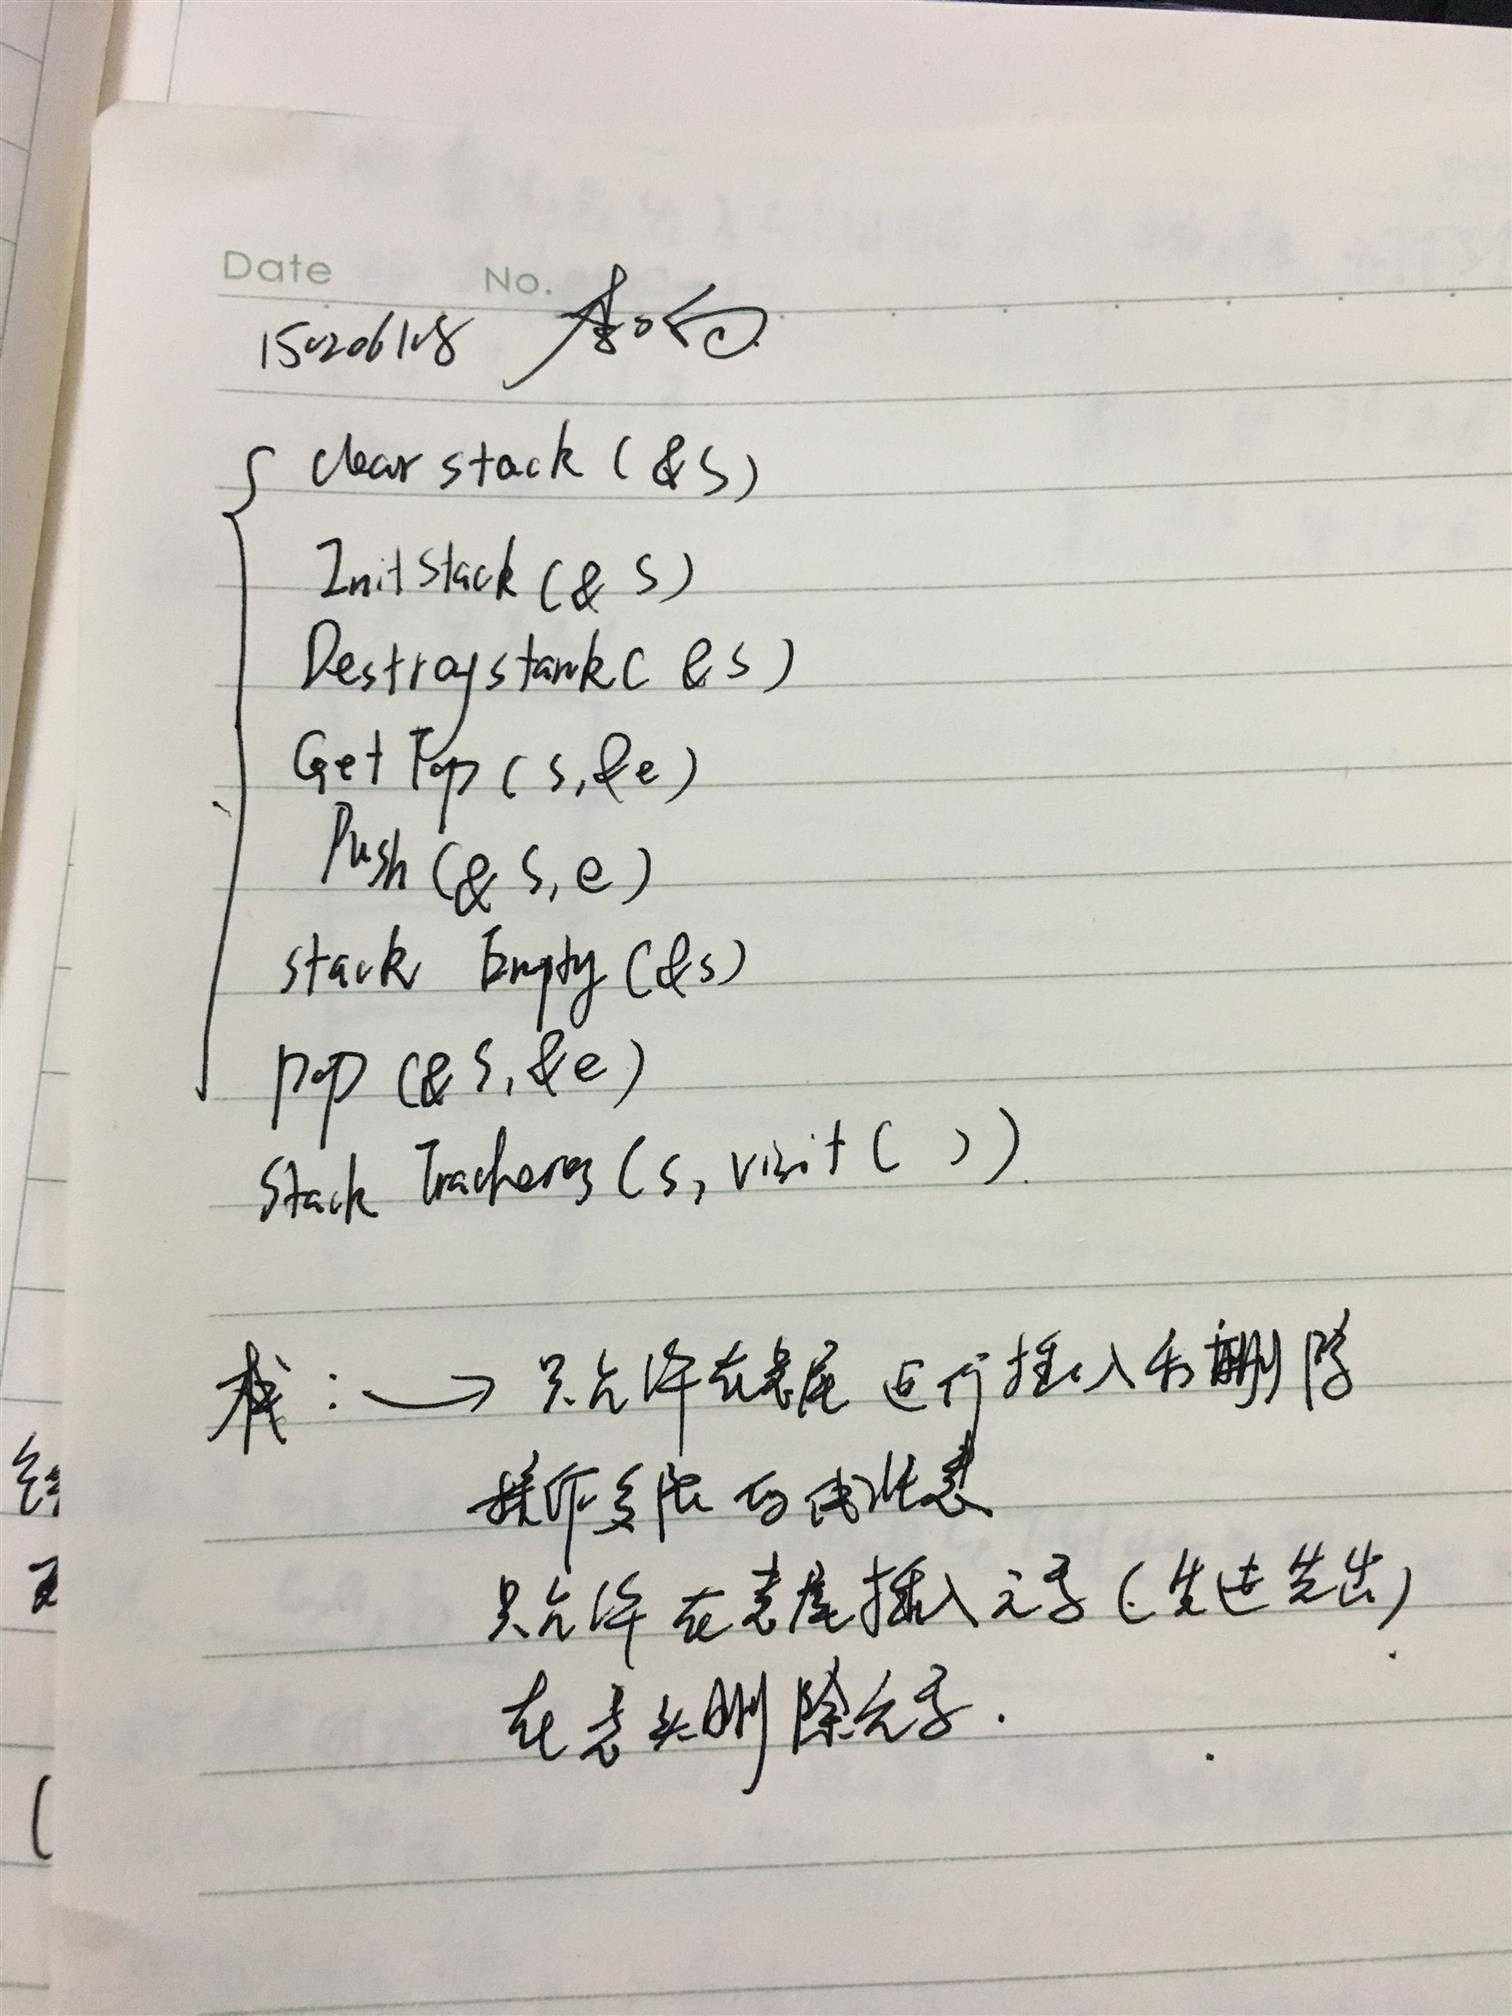 Date No.
150206108
clear stack (&S)
Init Stack (& S)
Destroystank( &s)
Get Top (s,&e)
Push (& S, e)
stack Empty (&s)
pop (& S, &e)
Stack (s, visit ( ))
栈：→ 只允许在表尾进行插入和删除
操作受限的线性表
只允许在表尾插入元素(先进先出)
在表头删除元素.